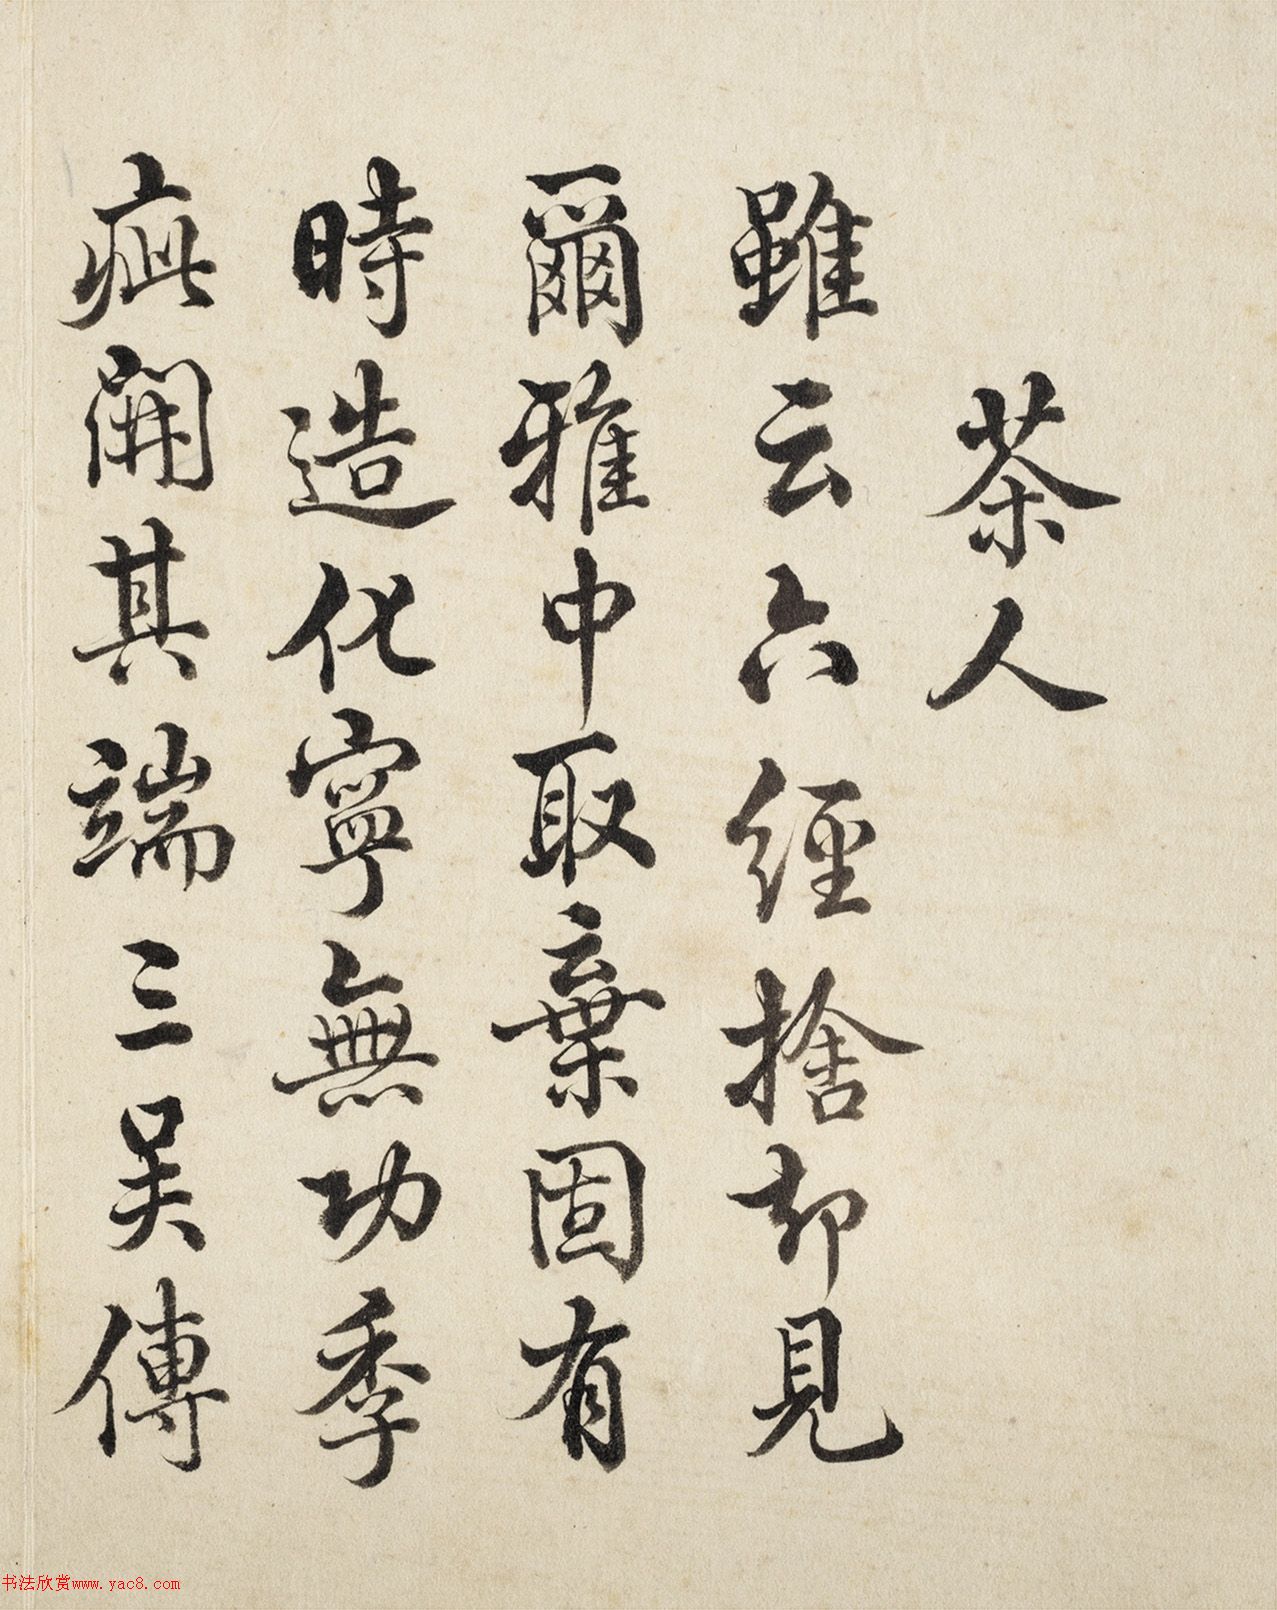 茶人
雖云六經捨却見
爾雅中取棄固有
時造化寧無功季
疵開其端三吴傳
书法欣赏www.yac8.com